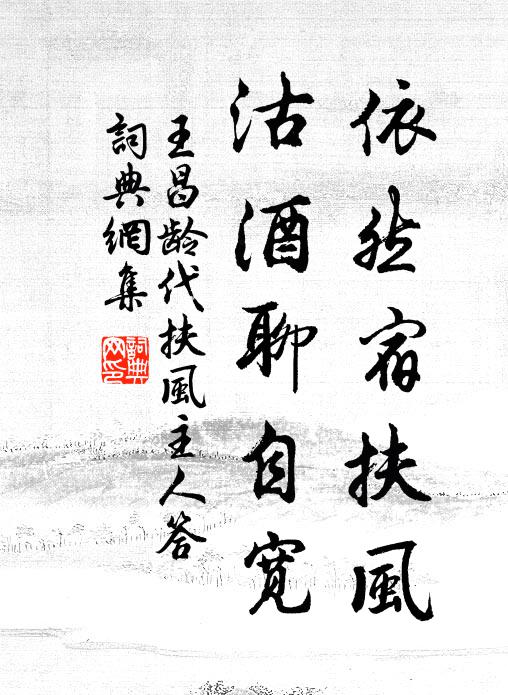 依然宿扶風
沽酒聊自寬
王昌龄代扶風主人答
詞典網集
詞典網印